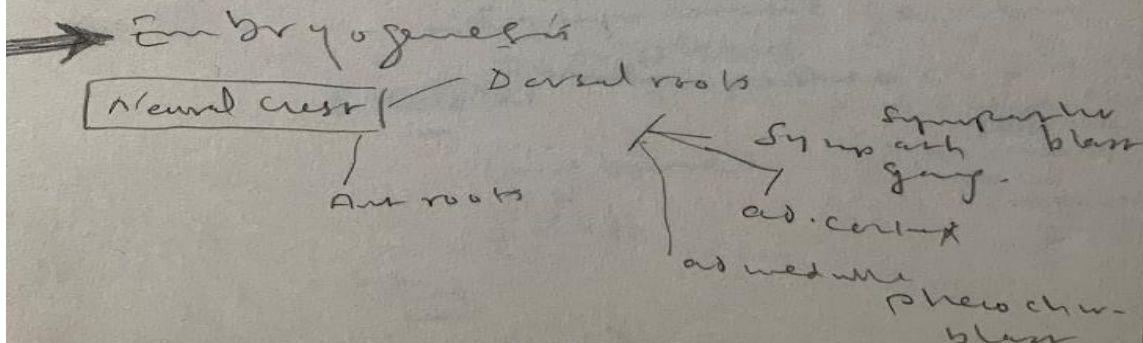 Embryogenesis
Neural Crest
Dorsal roots
Ant roots
Sympatho
blast
Sympath
gang.
ad. cortex
ad medulla
pheochro-
blast